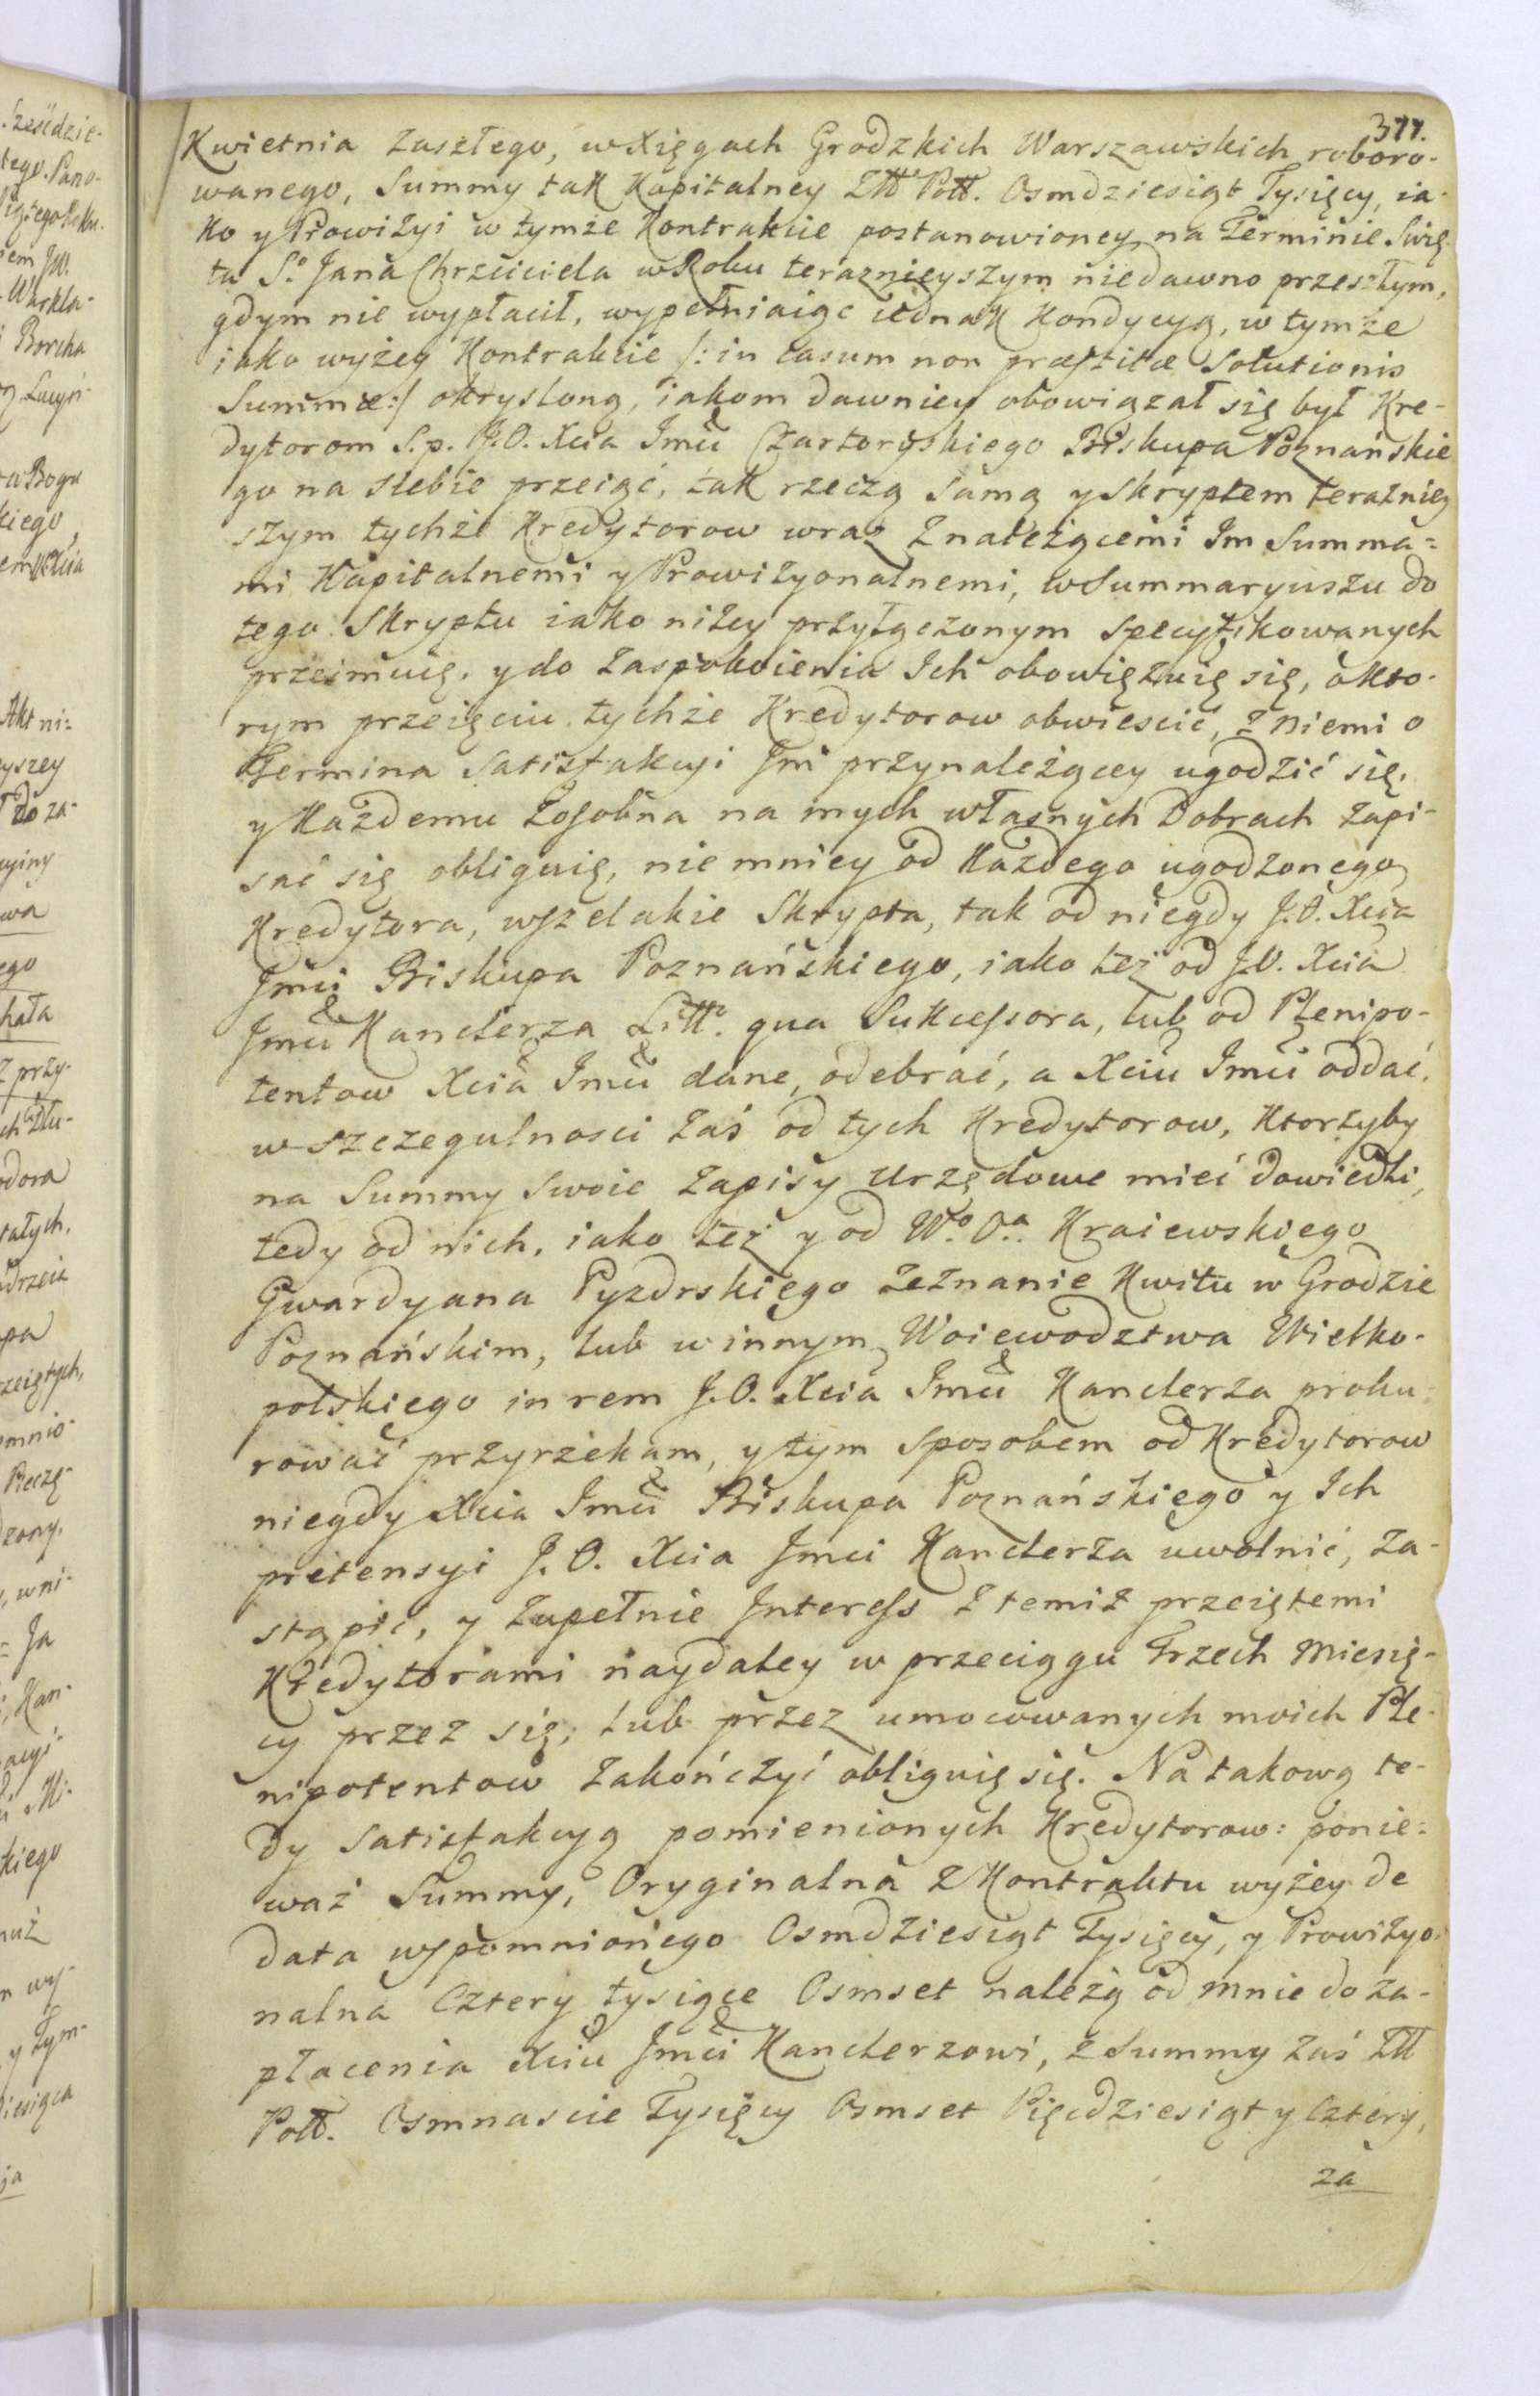 377.
Kwietnia zaszłego, w Xięgach Grodzkich Warszawskich roboro-
wanego, Summy tak Kapitalney Złł Poll. Osmdziesiąt Tysięcy, ia-
ko y Prowizyi w tymże Kontrakcie postanowioney na Terminie Swię-
ta So Jana Chrzciciela w Roku teraznieyszym niedawno przeszłym,
gdym nie wypłacił, wypełniaiąc iednak Kondycyą, w tymże
iako wyżey Kontrakcie /: in casum non præstitæ Solutionis
Summæ :/ okrysloną, iakom dawniey obowiązał się był Kre-
dytorom S.p. J.O. Xcia Jmci Czartoryskiego Biskupa Poznańskie
go na siebie przeiąć, tak rzeczą samą y Skryptem teraźniey
szym tychże Kredytorow wraz z należącemi Im Summa=
mi Kapitalnemi y Prowizyonalnemi, w Summaryuszu do
tego Skryptu iako niżey przyłączonym specyfikowanych
przeimuię, y do zaspokoienia Ich obowięzuię się, o kto-
rym przeięciu tychże Kredytorow obwiescić, z niemi o
Termina Satisfakcyi Jm przynależącey ugodzić się,
y Każdemu zosobna na mych własnych Dobrach zapi-
sać się obliguię, nie mniey od Każdego ugodzonego
Kredytora, wszelakie Skrypta, tak od niegdy J.O. Xcia
Jmci Biskupa Poznańskiego, iako też od J.O. Xcia
Jmci Kanclerza Litt. qua Sukcessora, lub od Plenipo-
tentow Xcia Jmci dane, odebrać, a Xciu Jmci oddać,
w szczegulnosci zaś od tych Kredytorow, Ktorzyby
na Summy swoie Zapisy Urzędowe mieć dowiedli,
tedy od nich, iako też y od Wo Oa Kraiewskiego
Gwardyana Pyzdrskiego zeznanie Kwitu w Grodzie
Poznańskim, lub w innym Woiewodztwa Wielko-
polskiego in rem J.O. Xcia Jmci Kanclerza proku-
rować przyrzekam, y tym sposobem od Kredytorow
niegdy Xcia Jmci Biskupa Poznańskiego y Ich
pretensyi J.O. Xcia Jmci Kanclerza uwolnić, za-
stąpić, y zupełnie Interess z temiż przeiętemi
Kredytorami naydaley w przeciągu Trzech Miesię-
cy przez się, lub przez umocowanych moich Ple-
nipotentow zakończyć obliguię się. Na takową te-
dy Satisfakcyą pomienionych Kredytorow: ponie=
waż Summy, Oryginalna z Kontraktu wyżey de
data wspomnionego Osmdziesiąt Tysięcy, y Prowizyo-
nalna Cztery tysiące Osmset należą od mnie do za-
płacenia Xciu Jmci Kanclerzowi, z Summy zaś Złł
Poll. Osmnascie Tysięcy Osmset Pięcdziesiąt y Cztery,
za